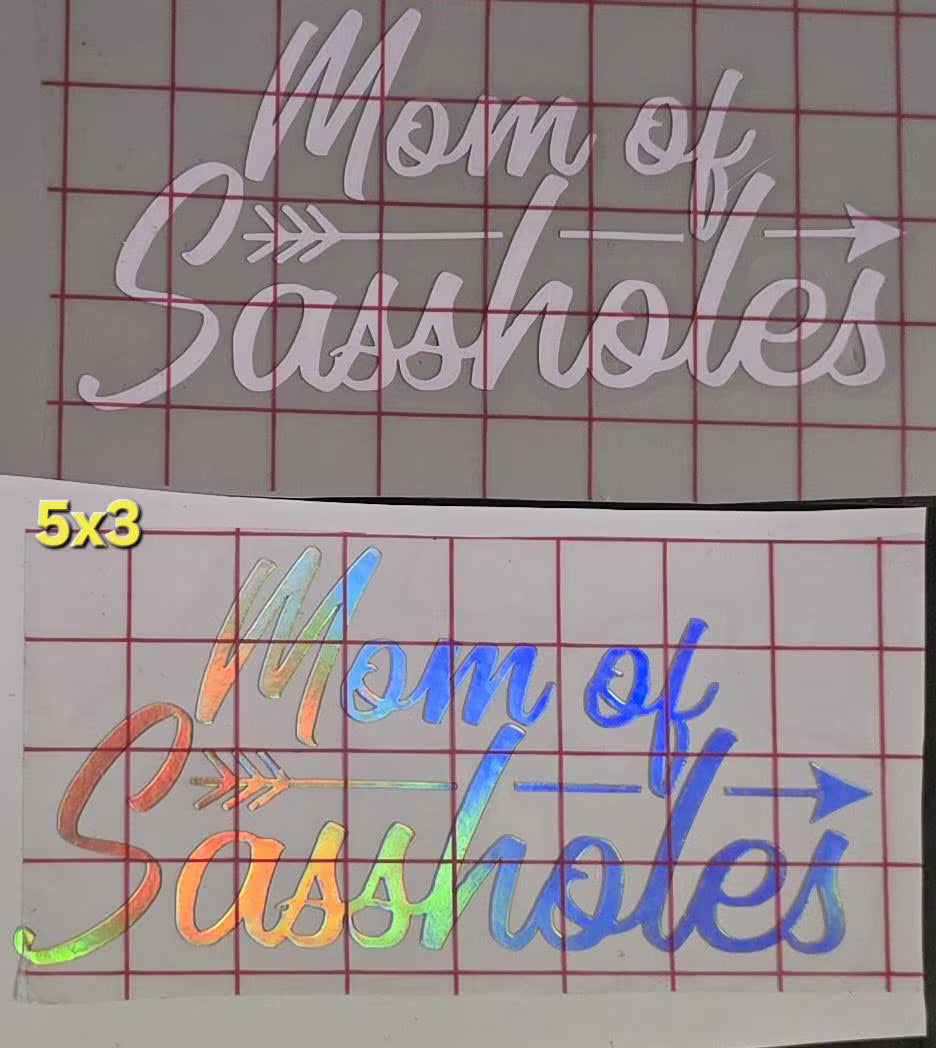 Mom of
Sassholes
5x3
Mom of
Sassholes